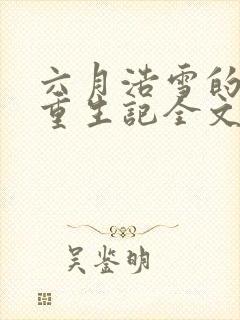 六月浩雪的
重生记全文
吴鉴明